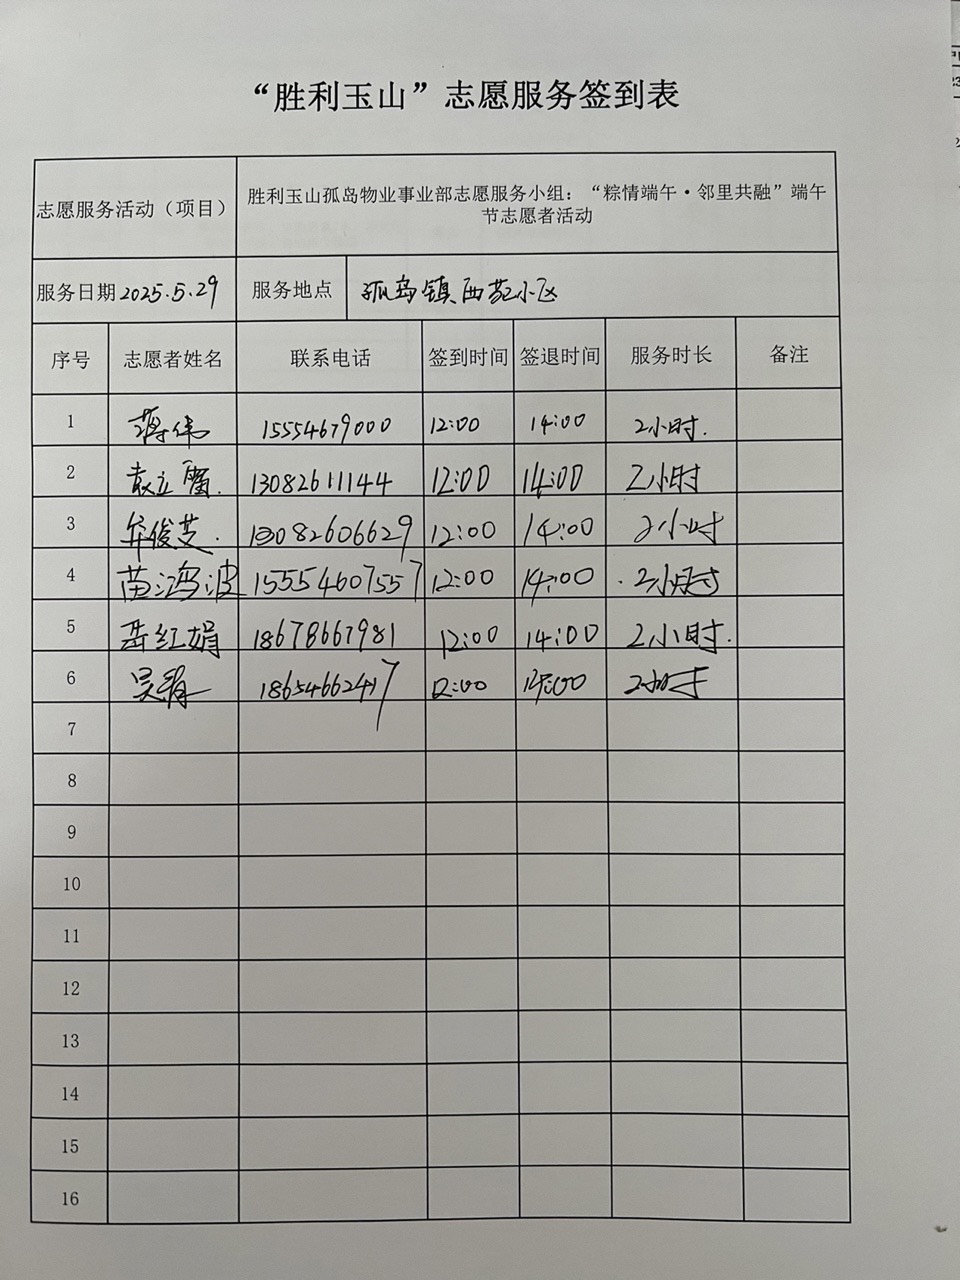 “胜利玉山”志愿服务签到表
志愿服务活动（项目） 胜利玉山孤岛物业事业部志愿服务小组：“粽情端午·邻里共融”端午
节志愿者活动
服务日期 2025.5.29 服务地点 孤岛镇西苑小区
序号 志愿者姓名 联系电话 签到时间 签退时间 服务时长 备注
1 蒋伟 15554679000 12:00 14:00 2小时.
2 袁立 13082611144 12:00 14:00 2小时
3 牟俊芝. 13082606629 12:00 14:00 2小时
4 苗鸿波 15554607557 12:00 14:00 2小时
5 岳红娟 18678667981 12:00 14:00 2小时.
6 吴 18654662417 12:00 14:00 2小时
7
8
9
10
11
12
13
14
15
16